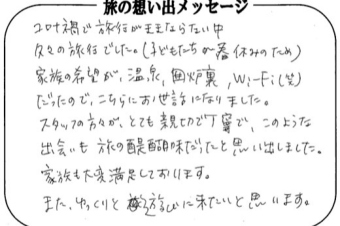 旅の想い出メッセージ
コロナ禍で旅行がままならない中
久々の旅行でした。(子どもたちが春休みのため)
家族の希望が、温泉、囲炉裏、Wi-Fi(笑)
だったので、こちらにお世話になりました。
スタッフの方々が、とても親切で丁寧で、このような
出会いも旅の醍醐味だったと思い出しました。
家族も大変満足しております。
また、ゆっくりと遊びに来たいと思います。